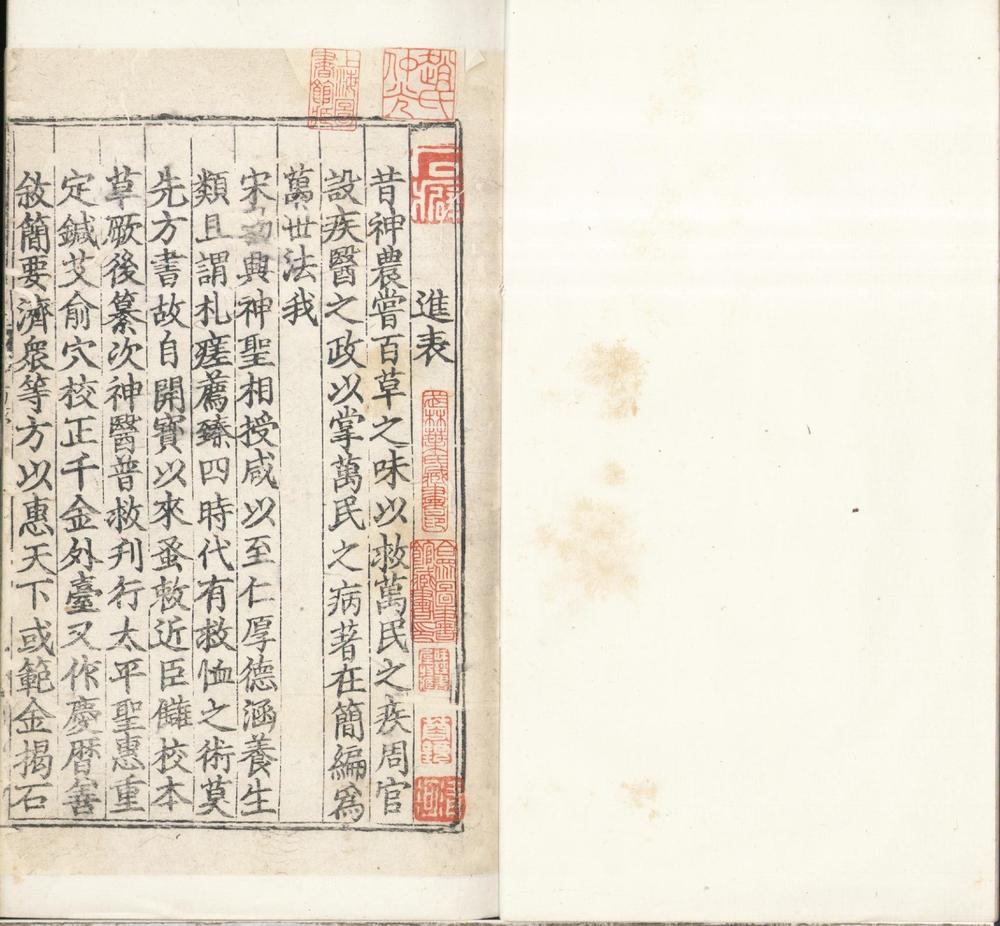 進表
昔神農嘗百草之味以救萬民之疾周官
設疾醫之政以掌萬民之病著在簡編爲
萬世法我
宋勃興神聖相授咸以至仁厚德涵養生
類且謂札瘥薦臻四時代有救恤之術莫
先方書故自開寶以來蚤敕近臣讎校本
草厥後纂次神醫普救刋行太平聖惠重
定鍼艾俞穴校正千金外臺又作慶曆善
敘簡要濟衆等方以惠天下或範金揭石
趙氏仲光
上海圖書館藏
林葉氏藏書印